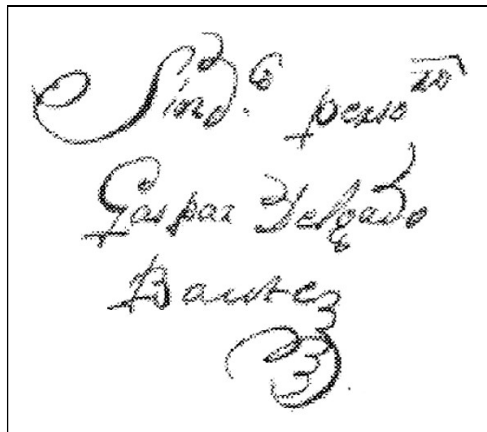 Sind.º perso^ro
Gaspar Delgado
Baute